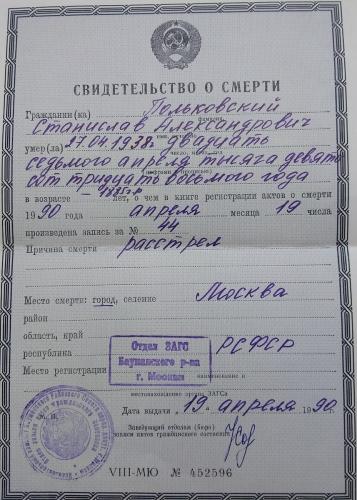 СВИДЕТЕЛЬСТВО О СМЕРТИ
Гражданин(ка) Польковский
фамилия
Станислав Александрович
умер(ла) 27.04.1938г. двадцать
седьмого апреля тысяча девять
сот тридцать восьмого года
в возрасте – 1885г.р. лет, о чем в книге регистрации актов о смерти
1990 года апреля месяца 19 числа
произведена запись за № 44
Причина смерти расстрел
Место смерти: город, селение Москва
район
область, край
республика РСФСР
Место регистрации
Отдел ЗАГС
Бауманского р-на
г. Москвы
наименование и
местонахождение органа ЗАГСа
Дата выдачи „19" апреля 1990 г.
Заведующий отделом (бюро)
записи актов гражданского состояния
VIII-МЮ № 452596